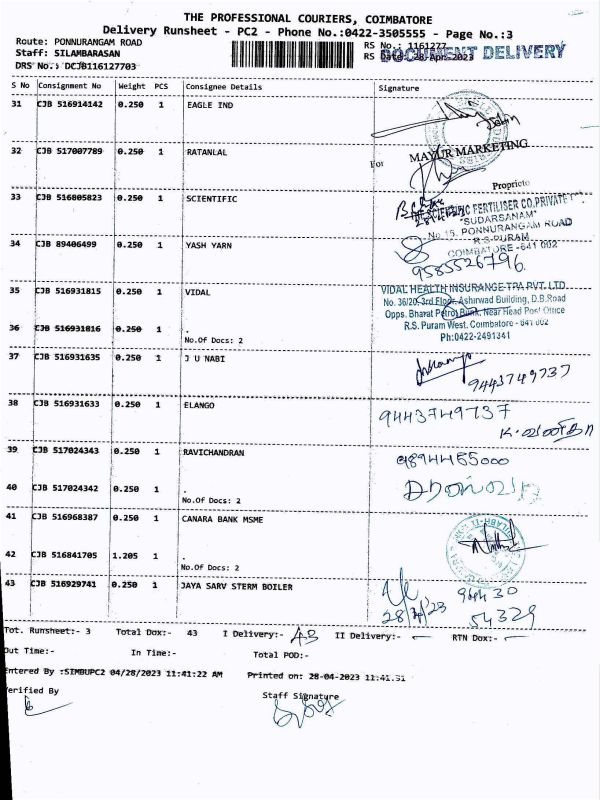 THE PROFESSIONAL COURIERS, COIMBATORE
Delivery Runsheet - PC2 - Phone No.:0422-3505555 - Page No.:3
Route: PONNURANGAM ROAD RS No.: 1161277
Staff: SILAMBARASAN RS Date: 28-Apr-2023
DOCUMENT DELIVERY
DRS No.: DCJB116127703
S No Consignment No Weight PCS Consignee Details Signature
31 CJB 516914142 0.250 1 EAGLE IND
32 CJB 517007789 0.250 1 RATANLAL
For MAYUR MARKETING
Proprieto
33 CJB 516805823 0.250 1 SCIENTIFIC
THE SCIENTIFIC FERTILISER CO.PRIVATE
"SUDARSANAM"
No 15, PONNURANGAM ROAD
R.S.PURAM,
COIMBATORE - 641 002
34 CJB 89406499 0.250 1 YASH YARN
9585526796
35 CJB 516931815 0.250 1 VIDAL
VIDAL HEALTH INSURANCE TPA PVT. LTD.
No. 36/20, 3rd Floor, Ashirwad Building, D.B.Road
Opps. Bharat Petrol Bunk, Near Head Post Office
R.S. Puram West, Coimbatore - 641 002
Ph:0422-2491341
36 CJB 516931816 0.250 1 .
No.Of Docs: 2
37 CJB 516931635 0.250 1 J U NABI
9443749737
38 CJB 516931633 0.250 1 ELANGO
9443749737
39 CJB 517024343 0.250 1 RAVICHANDRAN
9894465000
40 CJB 517024342 0.250 1 .
No.Of Docs: 2
41 CJB 516968387 0.250 1 CANARA BANK MSME
42 CJB 516841705 1.205 1 .
No.Of Docs: 2
43 CJB 516929741 0.250 1 JAYA SARV STERM BOILER
28/4/23
54329
Tot. Runsheet:- 3 Total Dox:- 43 I Delivery:- 43 II Delivery:- — RTN Dox:- —
Out Time:- In Time:- Total POD:-
Entered By :SIMBUPC2 04/28/2023 11:41:22 AM Printed on: 28-04-2023 11:41.31
Verified By Staff Signature